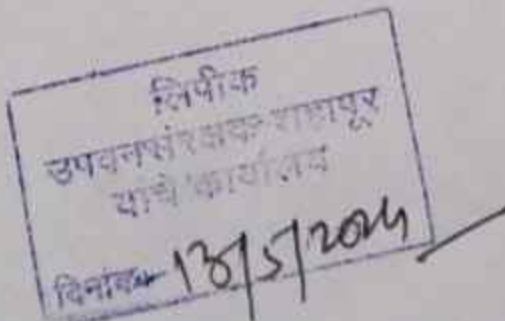 लिपीक
उपवनसंरक्षक शहापूर
यांचे कार्यालय
दिनांक 13/5/2024